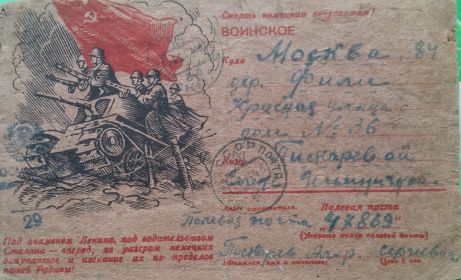 Смерть немецким оккупантам!
ВОИНСКОЕ
Куда Москва 84
дер. Фили
Красная улица
дом № 36
Кому Пискаревой
ПОЧТА
Адрес отправителя: Полевая почта
29
Полевая почта 47869
(Указать номер полевой почты)
Под знаменем Ленина, под водительством
Сталина — вперед, за разгром немецких
оккупантов и изгнание их из пределов
нашей Родины!
Сергеевич
(Фамилия, имя и отчество)
Цена 5 коп.